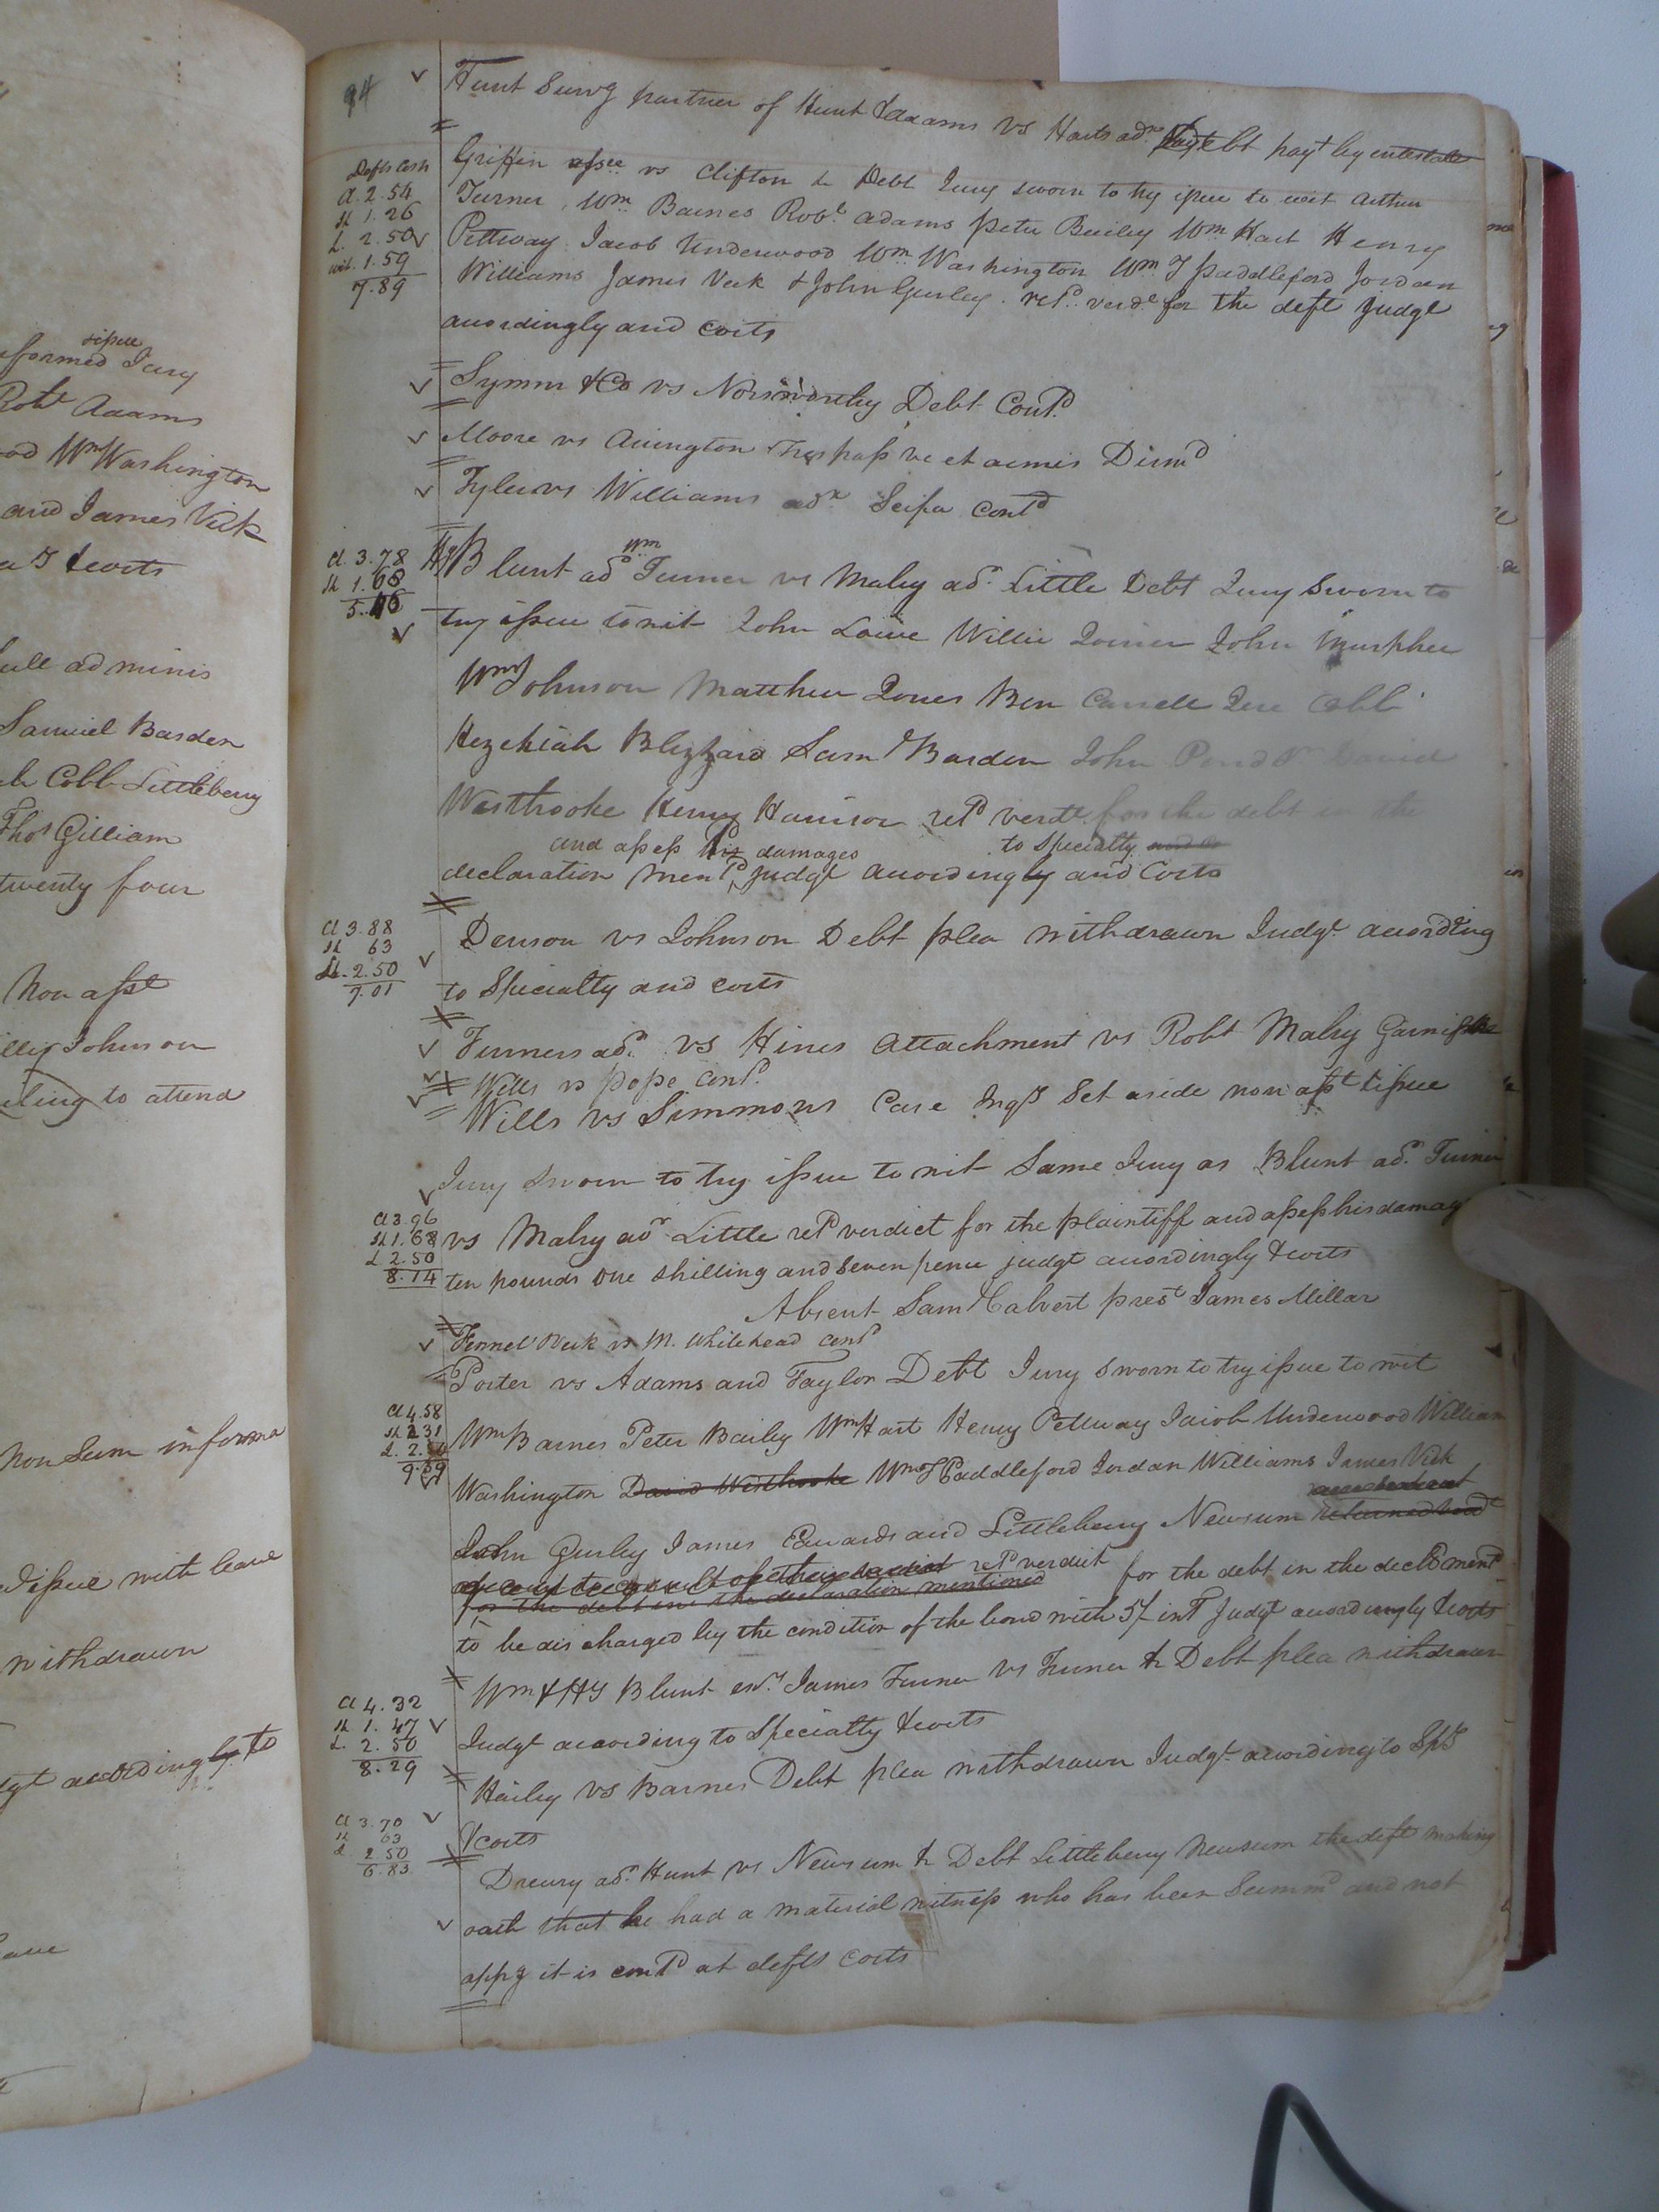 sissue
formed Jury
Robt Adams
od Wm Washington
and James Vick
& Costs
full adminis
Samuel Barden
Cobb Littleberry
Thos Gilliam
twenty four
Non asst
Johnson
to attend
Non Sum informa
issue with leave
withdrawn
accordingly to
94
Hunt Survg partner of Hunt & Adams vs Harts adr Debt payt by intestate
Defts Costs
Cl. 2.54
Sh 1.26
L. 2.50
wit. 1.59
7.89
Griffin assee vs Clifton &c Debt Jury sworn to try issue to wit Arthur
Turner, Wm Barnes Robt Adams Peter Bailey Wm Hart Henry
Pettway Jacob Underwood Wm Washington Wm T Paddleford Jordan
Williams James Vick & John Gurley. retd verdt for the deft Judgt
accordingly and Costs
Symm & Co vs Norsworthy Debt Contd
Moore vs Arrington Trespass vi et armis Dismd
Tyler vs Williams adr Scifa Contd
Cl. 3.78
Sh 1.68
5.46
Hy Blunt adr Wm Turner vs Malry adr Little Debt Jury Sworn to
try issue to wit John Lowe Willie Joiner John Murphee
Wm Johnson Matthew Jones Ben Carrell Jere Cobb
Hezekiah Blizzard Saml Barden John Pond Jr David
Westbrooke Henry Harrison retd verdt for the debt in the
and assess damages to Specialty
declaration mentd Judgt accordingly and Costs
Cl 3.88
Sh 63
L. 2.50
7.01
Denson vs Johnson Debt plea withdrawn Judgt according
to Specialty and costs
Turners adr vs Hines Attachment vs Robt Malry Garnishee
Wills vs Pope Contd
Wills vs Simmons Case Inqy Set aside non asst & issue
Jury Sworn to try issue to wit Same Jury as Blunt adr Turner
Cl 3.96
Sh 1.68
L 2.50
8.14
vs Malry adr Little retd verdict for the plaintiff and assess his damag
ten pounds one shilling and seven pence Judgt accordingly & costs
Absent Saml Calvert prest James Millar
Fennel Vick vs M. Whitehead Contd
Porter vs Adams and Taylor Debt Jury sworn to try issue to wit
Cl 4.58
Sh 2.31
L. 2.50
9.39
Wm Barnes Peter Bailey Wm Hart Henry Pettway Jacob Underwood William
Washington David Westbrooke Wm T Paddleford Jordan Williams James Vick
John Gurley James Edwards and Littleberry Newsum returned
of court to consult of their verdict retd verdict for the debt in the decln mentd
for the debt in the declaration mentioned
to be discharged by the condition of the bond with 5% int Judgt accordingly & costs
Cl 4.32
Sh 1.47
L. 2.50
8.29
Wm & Hy Blunt exrs James Turner vs Turner &c Debt plea withdrawn
Judgt according to Specialty & costs
Hailey vs Barnes Debt plea withdrawn Judgt according to Splty
Cl 3.70
Sh 63
L 2.50
6.83
& costs
Drewry adr Hunt vs Newsum &c Debt Littleberry Newsum the deft making
oath that he had a material witness who has been Summd and not
appg it is contd at defts costs